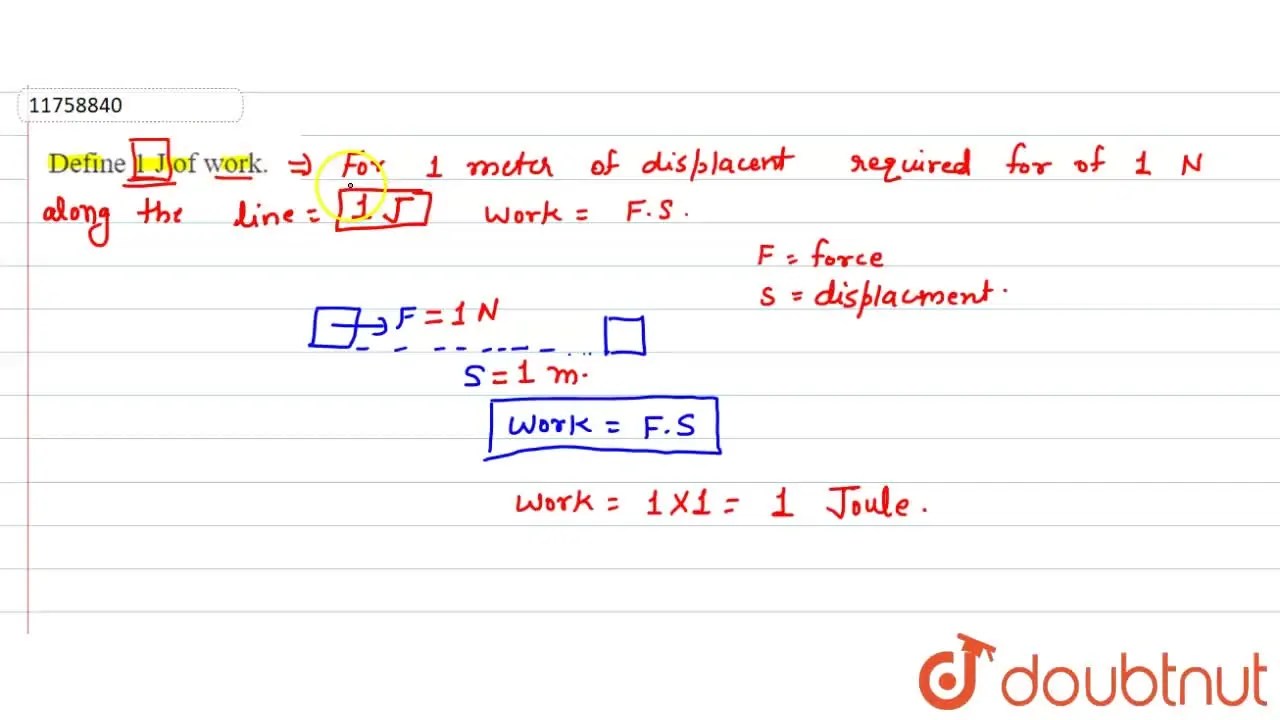 11758840
Define 1 J of work. ⇒ For 1 meter of displacent required for of 1 N
along the line = 1 J work = F.S.
F = force
S = displacment.
F = 1 N
S = 1 m.
Work = F.S
Work = 1×1 = 1 Joule.
doubtnut